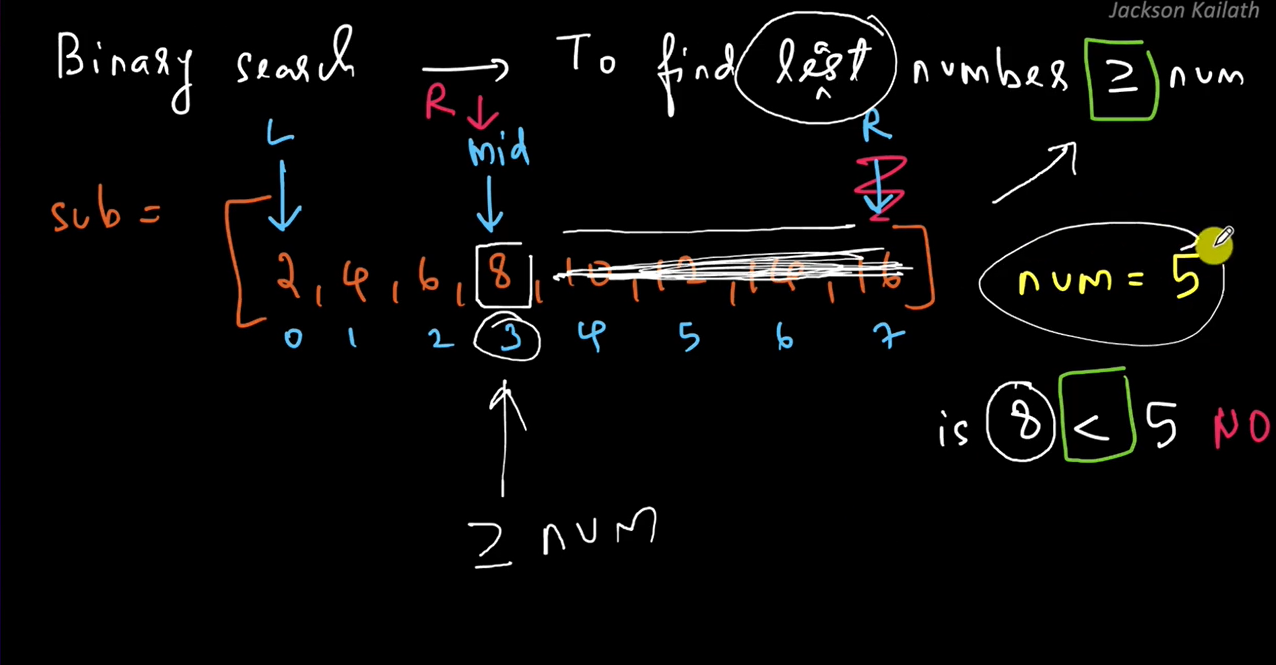 Jackson Kailath
Binary search → To find least number ≥ num
R ↓
L mid R
sub = [2, 4, 6, 8, 10, 12, 14, 16]
num = 5
0 1 2 3 4 5 6 7
is 8 < 5 NO
≥ num